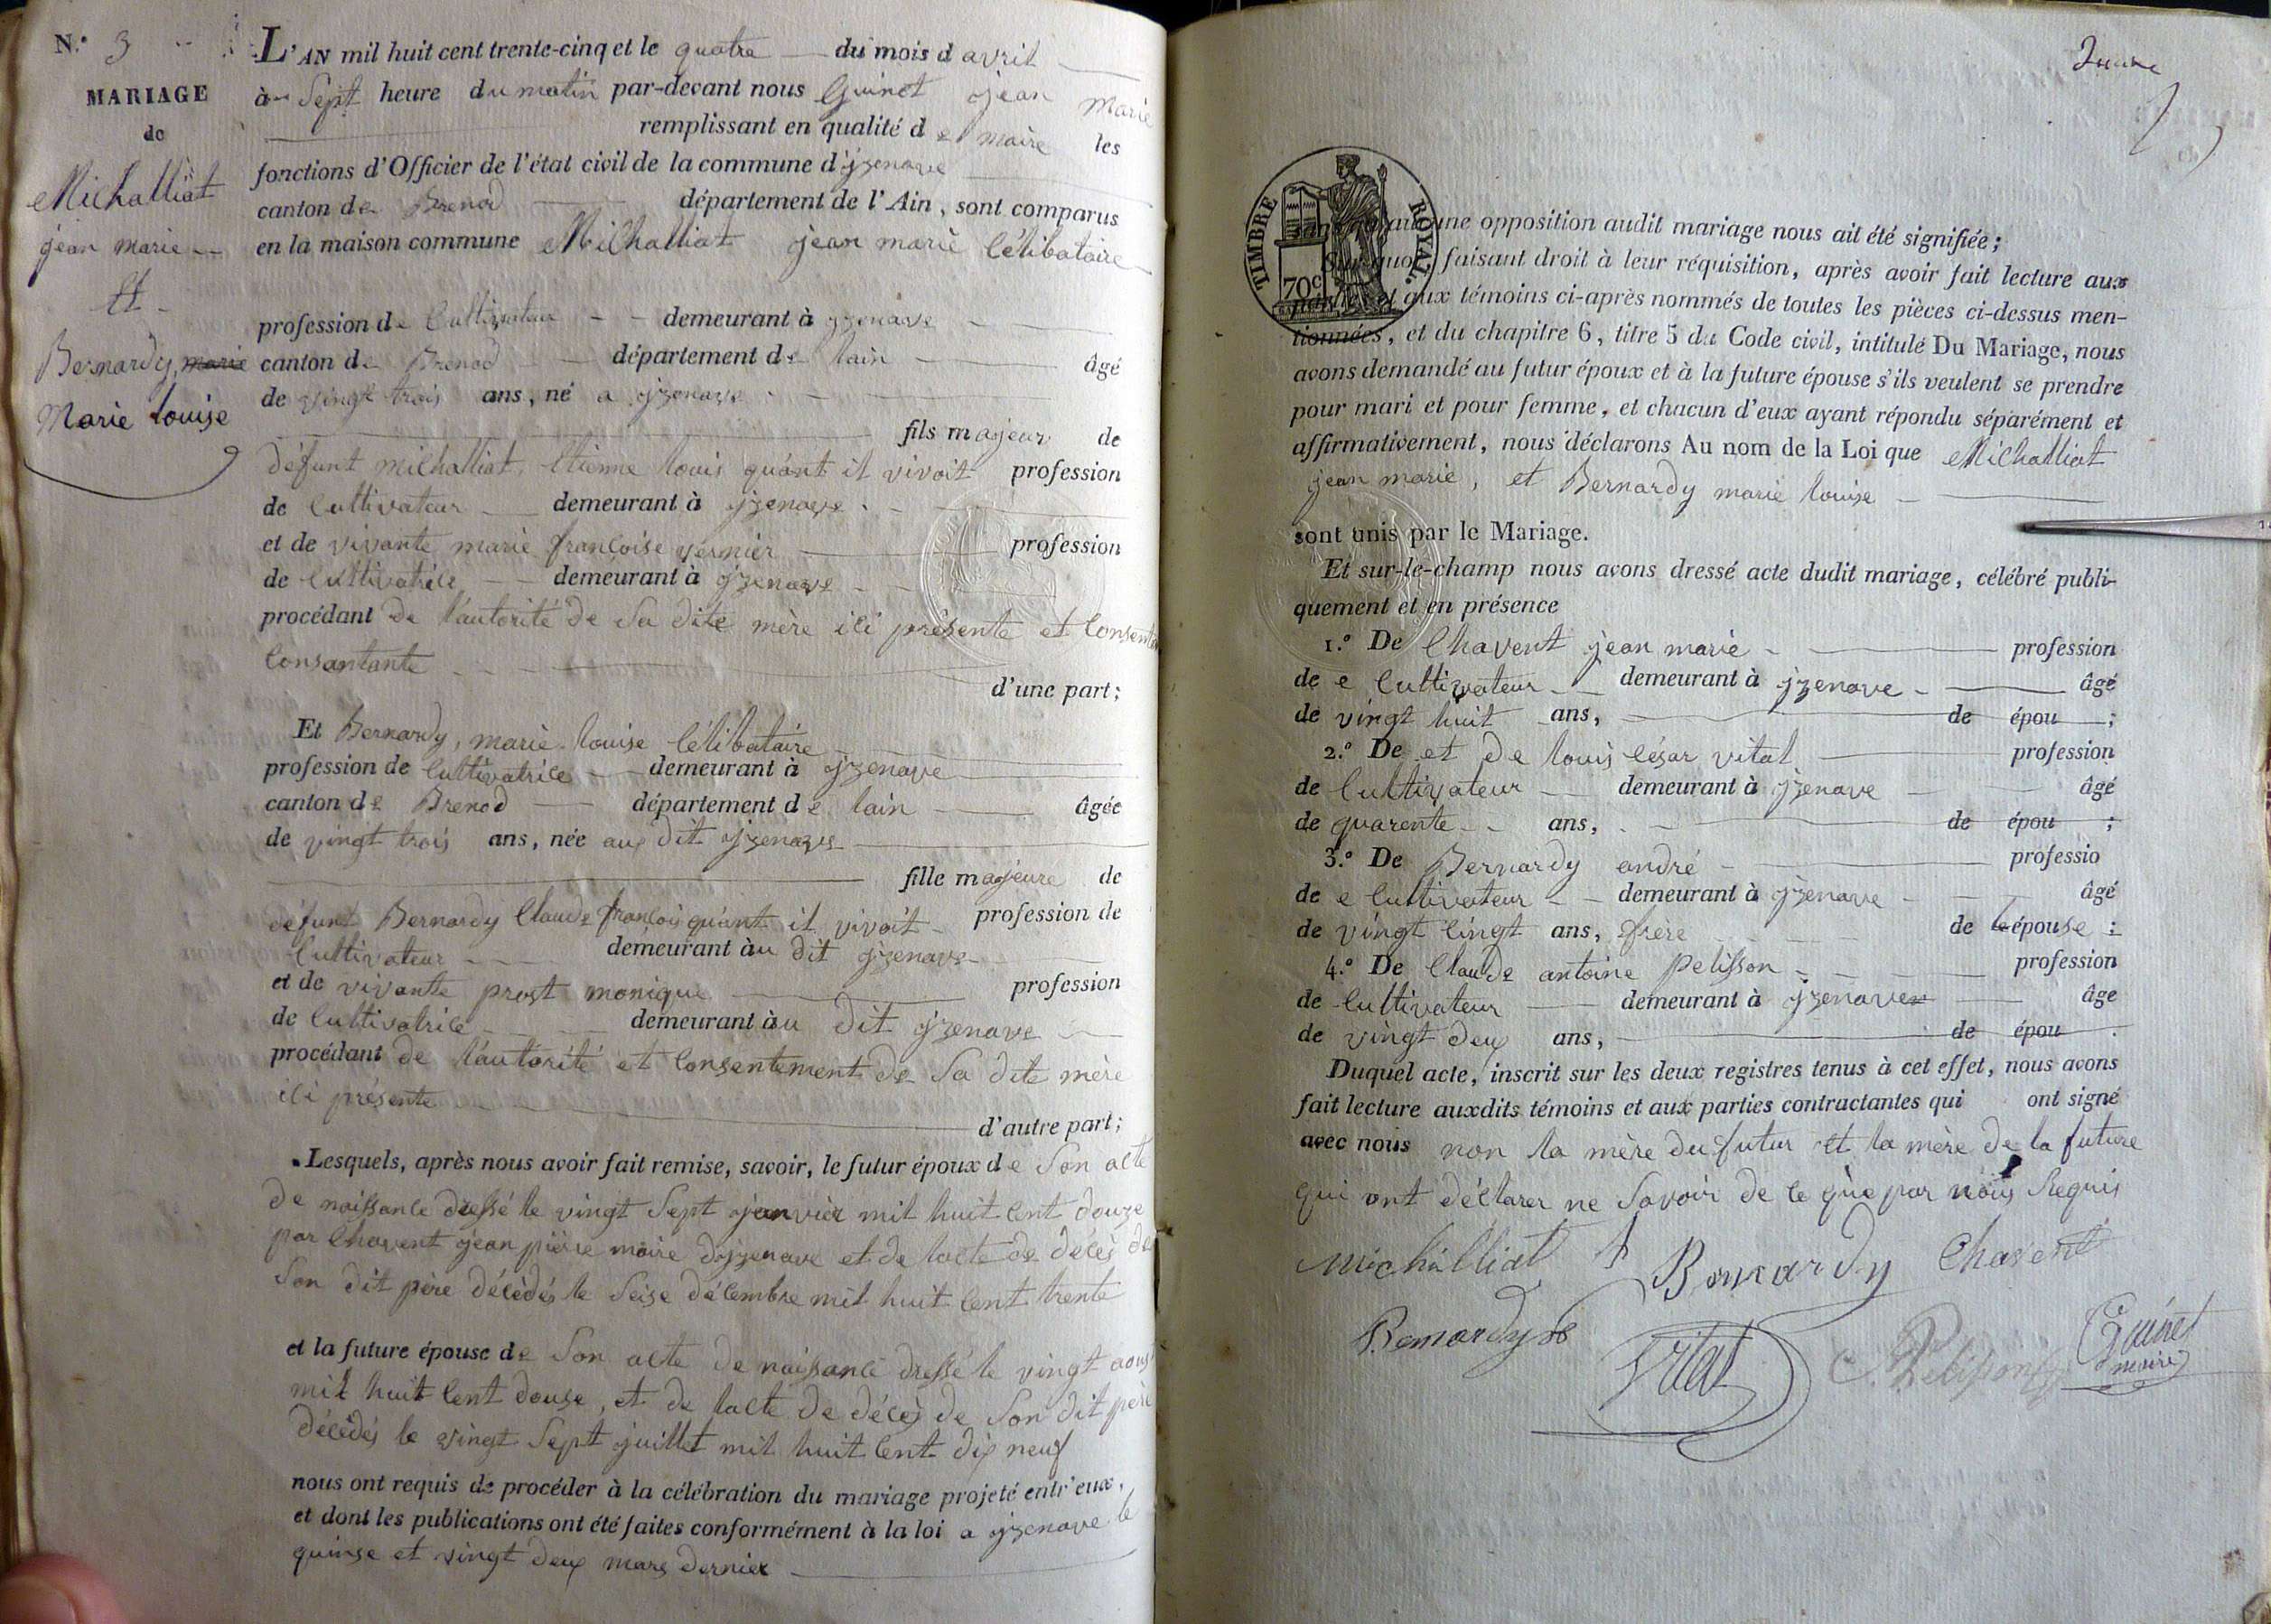 N.º 3
MARIAGE
de
Michalliat
jean marie
Et
Bernardy, marie
Marie louise
L'AN mil huit cent trente-cinq et le quatre du mois d avril
à Sept heure du matin par-devant nous Guinet jean Marie
remplissant en qualité de maire les
fonctions d'Officier de l'état civil de la commune d'jzenave
canton de Brenod département de l'Ain, sont comparus
en la maison commune Michalliat jean marie Célibataire
profession de Cultivateur demeurant à jzenave
canton de Brenod département de lain âgé
de vingt trois ans, né a jzenave
fils majeur de
défunt michalliat, Etienne louis quánt il vivoit profession
de Cultivateur demeurant à jzenave
et de vivante marie françoise vernier profession
de Cultivatrice demeurant à jzenave
procédant de l'autorité de Sa dite mère ici présente et Consenta
Consantante
d'une part;
Et Bernardy, marie louise Célibataire
profession de Cultivatrice demeurant à jzenave
canton de Brenod département de lain âgée
de vingt trois ans, née aux dit jzenave
fille majeure de
défunt Bernardy Claude françois quánt il vivoit profession de
Cultivateur demeurant àu dit jzenave
et de vivante prost monique profession
de Cultivatrice demeurant àu dit jzenave
procédant de l'autorité et Consentement de Sa dite mère
ici présente
d'autre part;
Lesquels, après nous avoir fait remise, savoir, le futur époux de Son acte
de naissance dressé le vingt Sept janvier mil huit Cent douze
par Chavent jean pierre maire djzenave et de lacte de décès de
Son dit père décédés le Seise décembre mil huit Cent trente
et la future épouse de Son acte de naissance dressé le vingt aous
mil huit Cent douse, et de lacte de décès de Son dit père
décédés le vingt Sept juillet mil huit Cent dix neuf
nous ont requis de procéder à la célébration du mariage projeté entr'eux,
et dont les publications ont été faites conformément à la loi a jzenave le
quinse et vingt deux mars dernier
TIMBRE ROYAL.
70c
aucune opposition audit mariage nous ait été signifiée;
Sur quoi faisant droit à leur réquisition, après avoir fait lecture aux
parties et aux témoins ci-après nommés de toutes les pièces ci-dessus men-
tionnées, et du chapitre 6, titre 5 du Code civil, intitulé Du Mariage, nous
avons demandé au futur époux et à la future épouse s'ils veulent se prendre
pour mari et pour femme, et chacun d'eux ayant répondu séparément et
affirmativement, nous déclarons Au nom de la Loi que Michalliat
jean marie, et Bernardy marie louise
sont unis par le Mariage.
Et sur-le-champ nous avons dressé acte dudit mariage, célébré publi-
quement et en présence
1.º De Chavent jean marie profession
de e Cultivateur demeurant à jzenave âgé
de vingt huit ans, de épou ;
2.º De et de louis César vital profession
de Cultivateur demeurant à jzenave âgé
de quarente ans, de épou ;
3.º De Bernardy andré professio
de e Cultivateur demeurant à jzenave âgé
de vingt Cingt ans, frère de lépouse ;
4.º De Claude antoine Pelisson profession
de Cultivateur demeurant à jzenave âge
de vingt deux ans, de épou .
Duquel acte, inscrit sur les deux registres tenus à cet effet, nous avons
fait lecture auxdits témoins et aux parties contractantes qui ont signé
avec nous non la mère du futur et la mère de la future
qui ont déclarer ne Savoir de ce què par nous Requis
Michalliat Bernardy Chavent
Bernardy
Vital C. Pelisson Guinet
maire